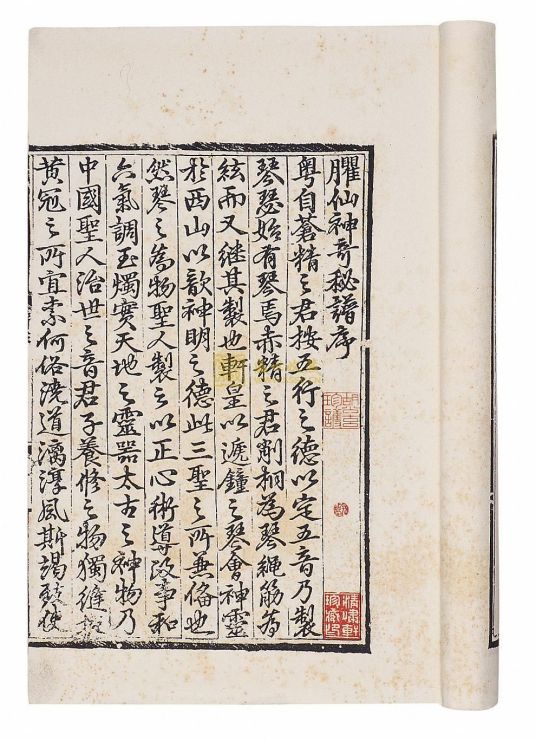 臞仙神奇秘譜序
粵自蒼精之君按五行之德以定五音乃製
琴瑟始有琴焉赤精之君削桐為琴繩絲為
絃而又繼其製也軒皇以遞鐘之琴會神靈
於西山以歆神明之德此三聖之所兼備也
然琴之為物聖人製之以正心術導政事和
六氣調玉燭實天地之靈器太古之神物乃
中國聖人治世之音君子養修之物獨縫掖
黃冠之所宜素何俗澆道漓淳風斯竭致使